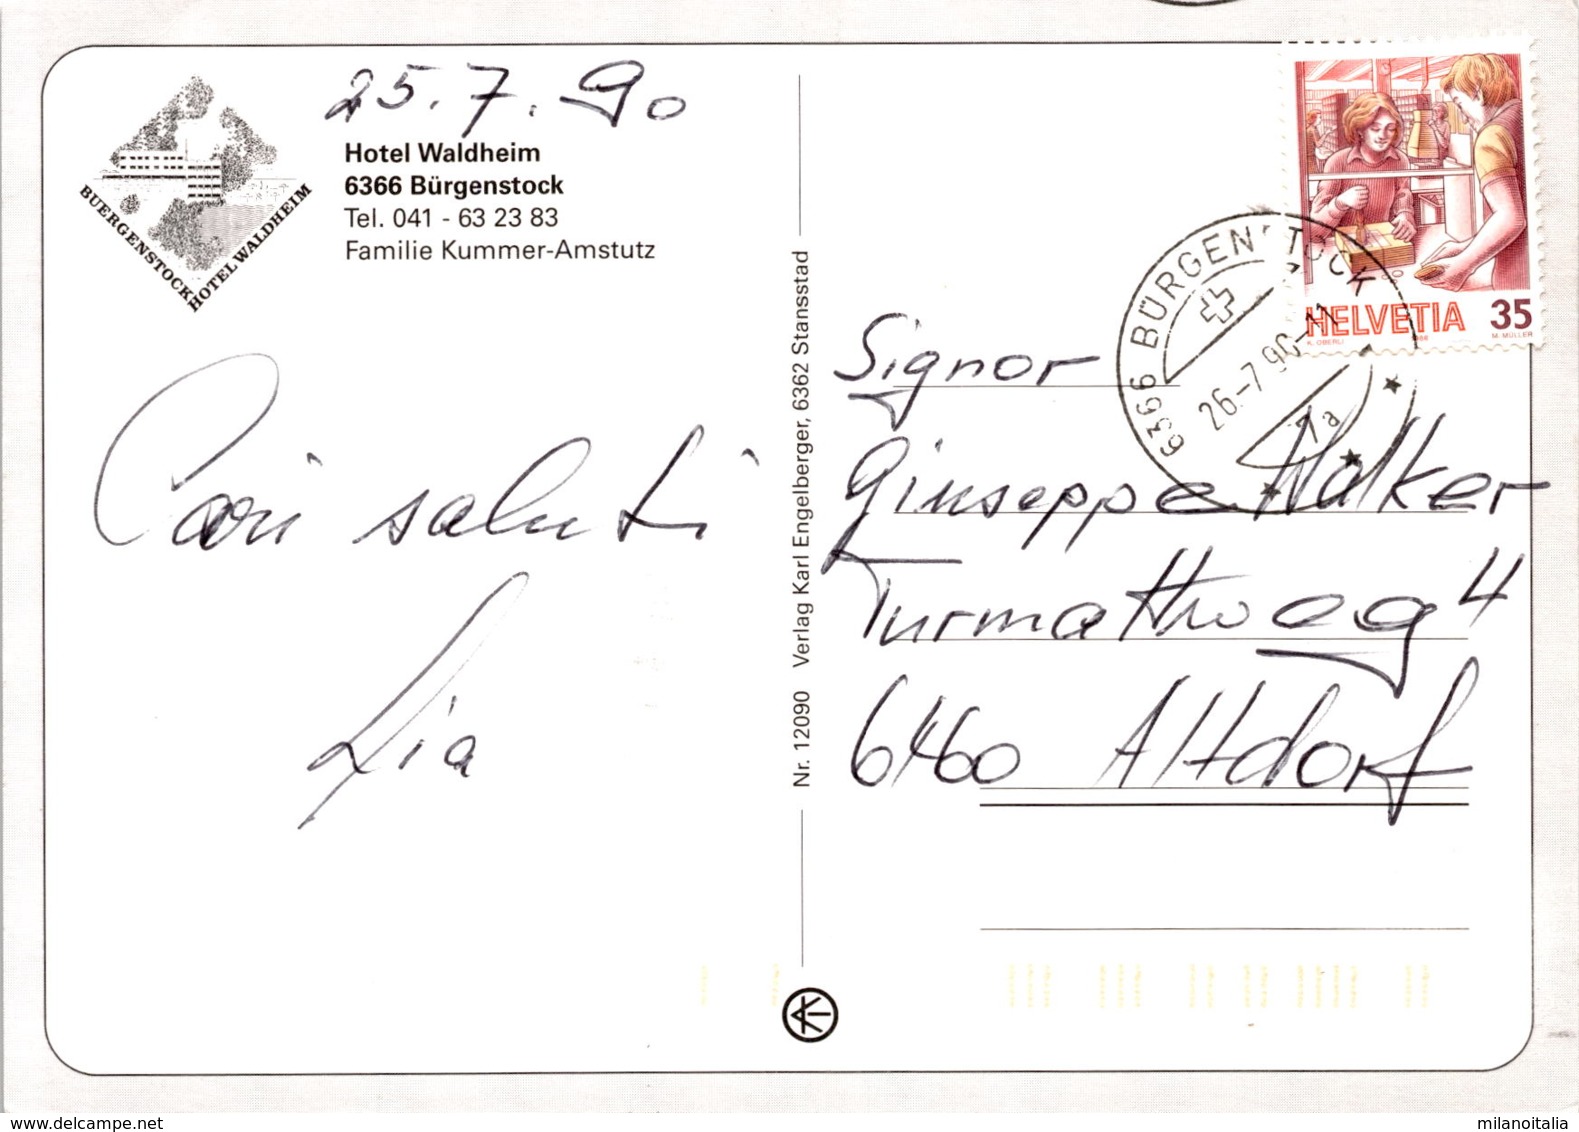 25.7.90
Hotel Waldheim
6366 Bürgenstock
Tel. 041 - 63 23 83
Familie Kummer-Amstutz
BUERGENSTOCK
HOTEL WALDHEIM
Cari saluti
Lia
Nr. 12090 Verlag Karl Engelberger, 6362 Stansstad
HELVETIA 35
K. OBERLI 1986 M. MÜLLER
6366 BÜRGENSTOCK
26.-7.90-17
7a
Signor
Giuseppe Walker
Turmattweg 4
6460 Altdorf
www.delcampe.net
milanoitalia